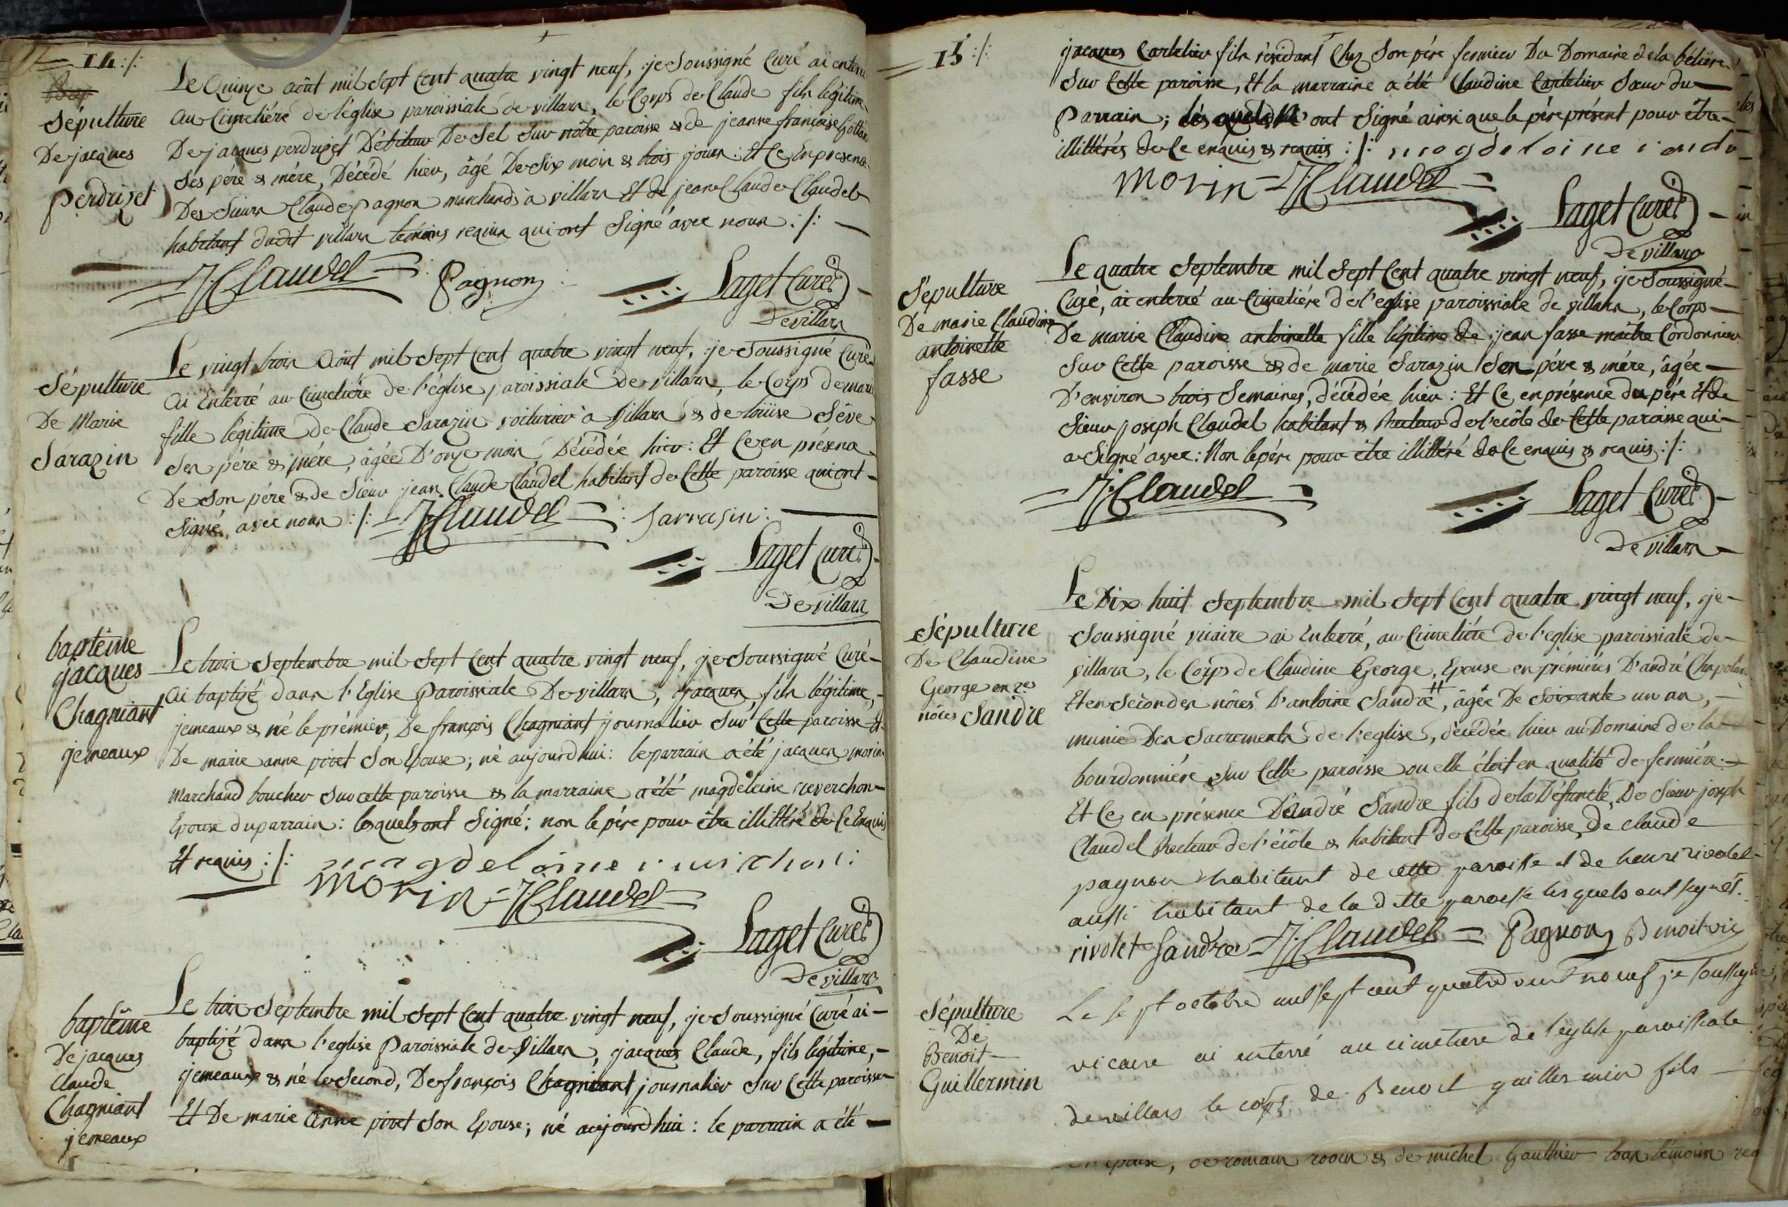 14 :/:
Sépulture
De jacques
perdrizet
Le Quinze août mil Sept Cent quatre vingt neuf, je Soussigné Curé ai enterré
au Cimetiére de l'église paroissiale de villars, le Corps de Claude fils légitime
De jacques perdrizet Débiteur De Sel Sur nôtre paroisse & de jeanne francoise
Ses pére & mére, Décédé hier, âgé De Six mois & trois jours : Et Ce En presence
Des Sieurs Claude pagnon marchand à villars Et de jean Claude Claudel
habitant dudit villars temoins requis qui ont Signé avec nous :/:
JClaudel Pagnon Laget Curé
De villars
Sépulture
De Marie
Sarazin
Le vingt trois Août mil Sept Cent quatre vingt neuf, je Soussigné Curé
ai Enterré au Cimetiére de l'église paroissiale de villars, le Corps de marie
fille légitime de Claude Sarazin voiturier à Villars & de loüise Séve
Ses pére & mére, âgée D'onze mois, Décédée hier : Et Ce en présence
De Son pére & de Sieur jean Claude Claudel habitant de Cette paroisse qui ont
Signé avec nous :/: JClaudel Sarrasin :
Laget Curé
De villars
baptême
jacques
Chagniant
jemeaux
Le trois Septembre mil Sept Cent quatre vingt neuf, je Soussigné Curé
ai baptizé dans l'Eglise Paroissiale De villars, jacques, fils légitime,
jemeaux & né le prémier, De françois Chagniant journalier Sur Cette paroisse &
De marie anne pivet Son Epouse ; né aujourdhui : le parrain a été jacques morin
Marchand boucher Sur cette paroisse & la marraine a été magdeleine reverchon
Epouse du parrain : lesquels ont Signé ; non le pére pour être illittéré de Ce Enquis
Et requis :/:
morin JClaudel
Laget Curé
De villars
baptême
De jacques
Claude
Chagniant
jemeaux
Le trois Septembre mil Sept Cent quatre vingt neuf, je Soussigné Curé ai
baptizé dans l'eglise Paroissiale de Villars, jacques Claude, fils légitime,
jemeaux & né le Second, De françois Chagniant journalier Sur Cette paroisse
Et De marie Anne pivet Son Epouse ; né aujourdhui : le parrain a été
15 :/:
jacques Cartelier fils résidant Chez Son pére fermier Du Domaine de la béliere
Sur Cette paroisse, Et la marraine a été Claudine Cartelier Sœur du
Parrain ; lesquels n'ont Signé ainsi que le pére présent pour être
illittérés de Ce enquis & requis :/:
morin JClaudel
Laget Curé
De villars
Sépulture
De marie Claudine
antoinette
fasse
Le quatre Septembre mil Sept Cent quatre vingt neuf, je Soussigné
Curé, ai enterré au Cimetiére de l'eglise paroissiale de villars, le Corps
De marie Claudine antoinette fille légitime de jean fasse maître Cordonnier
Sur Cette paroisse & de marie Sarazin Son pére & mére, âgée
D'environ trois Semaines, décédée hier : Et Ce en présence du pére Et de
Sieur joseph Claudel habitant & Recteur de l'école de Cette paroisse qui
a Signé avec : Non le pére pour être illittéré de Ce enquis & requis :/:
JClaudel Laget Curé
De villars
Sépulture
De Claudine
George en 2es
nôces Sandre
Le Dix huit Septembre mil Sept Cent quatre vingt neuf, je
Soussigné vicaire ai Enterré, au Cimetiére de l'eglise paroissiale de
villars, le Corps de Claudine George, Epouse en prémiéres D'andré
Et en Secondes nôces D'antoine Sandre, âgée De Soixante un an,
munie Des Sacrements de l'eglise, décédée hier au Domaine de la
bourdonniére Sur Cette paroisse ou elle étoit en qualité de fermiére :
Et Ce en présence D'andré Sandre fils de la Défuncte, De Sieur joseph
Claudel Recteur de l'école & habitant de Cette paroisse, de claude
pagnon habitant de cette paroisse et de henri rivolet
aussi habitant de la ditte paroisse les quels ont signés.
rivolet Sandre JClaudel Pagnon Benoit vic
Sépulture
De
Benoit
Guillermin
Le sept octobre mil sept cent quatre vint neuf je soussigné
vicaire ai enterré au cimetiere de l'eglise paroissiale
de villars le corps de Benoit guillermin fils